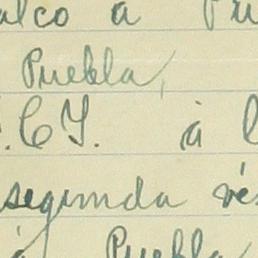 alco a Pu
Puebla,
.C.Y. á l
segunda vés
á Puebla